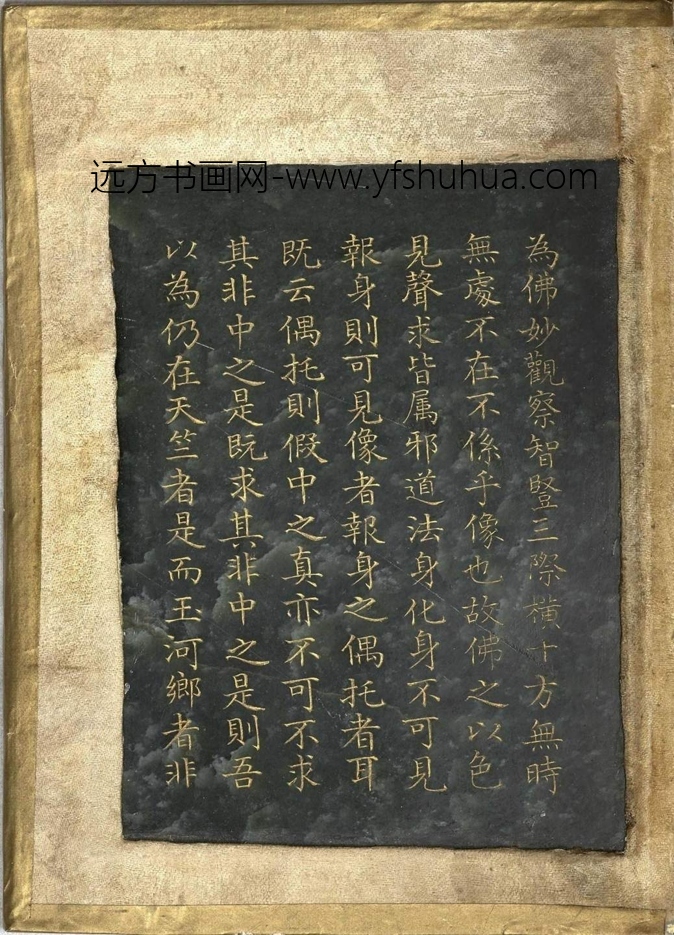 远方书画网-www.yfshuhua.com
為佛妙觀察智豎三際橫十方無時
無處不在不係乎像也故佛之以色
見聲求皆属邪道法身化身不可見
報身則可見像者報身之偶托者耳
既云偶托則假中之真亦不可不求
其非中之是既求其非中之是則吾
以為仍在天竺者是而玉河鄉者非